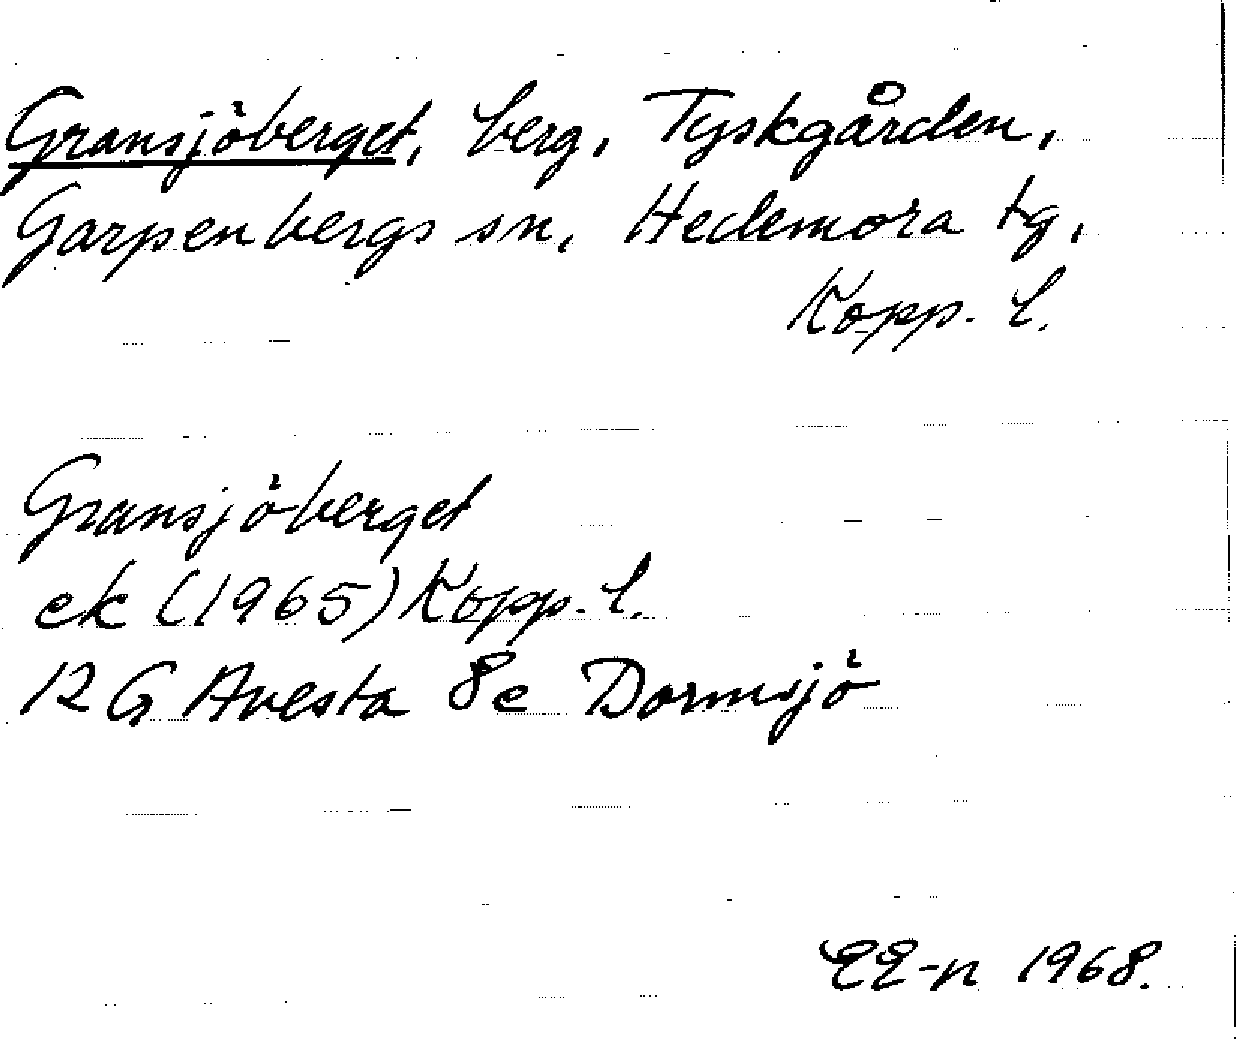 Gransjöberget, berg, Tyskgården,
Garpenbergs sn, Hedemora tg,
Kopp. l.
Gransjöberget
ek (1965) Kopp. l.
12 G Avesta 8e Dormsjö
EE-n 1968.